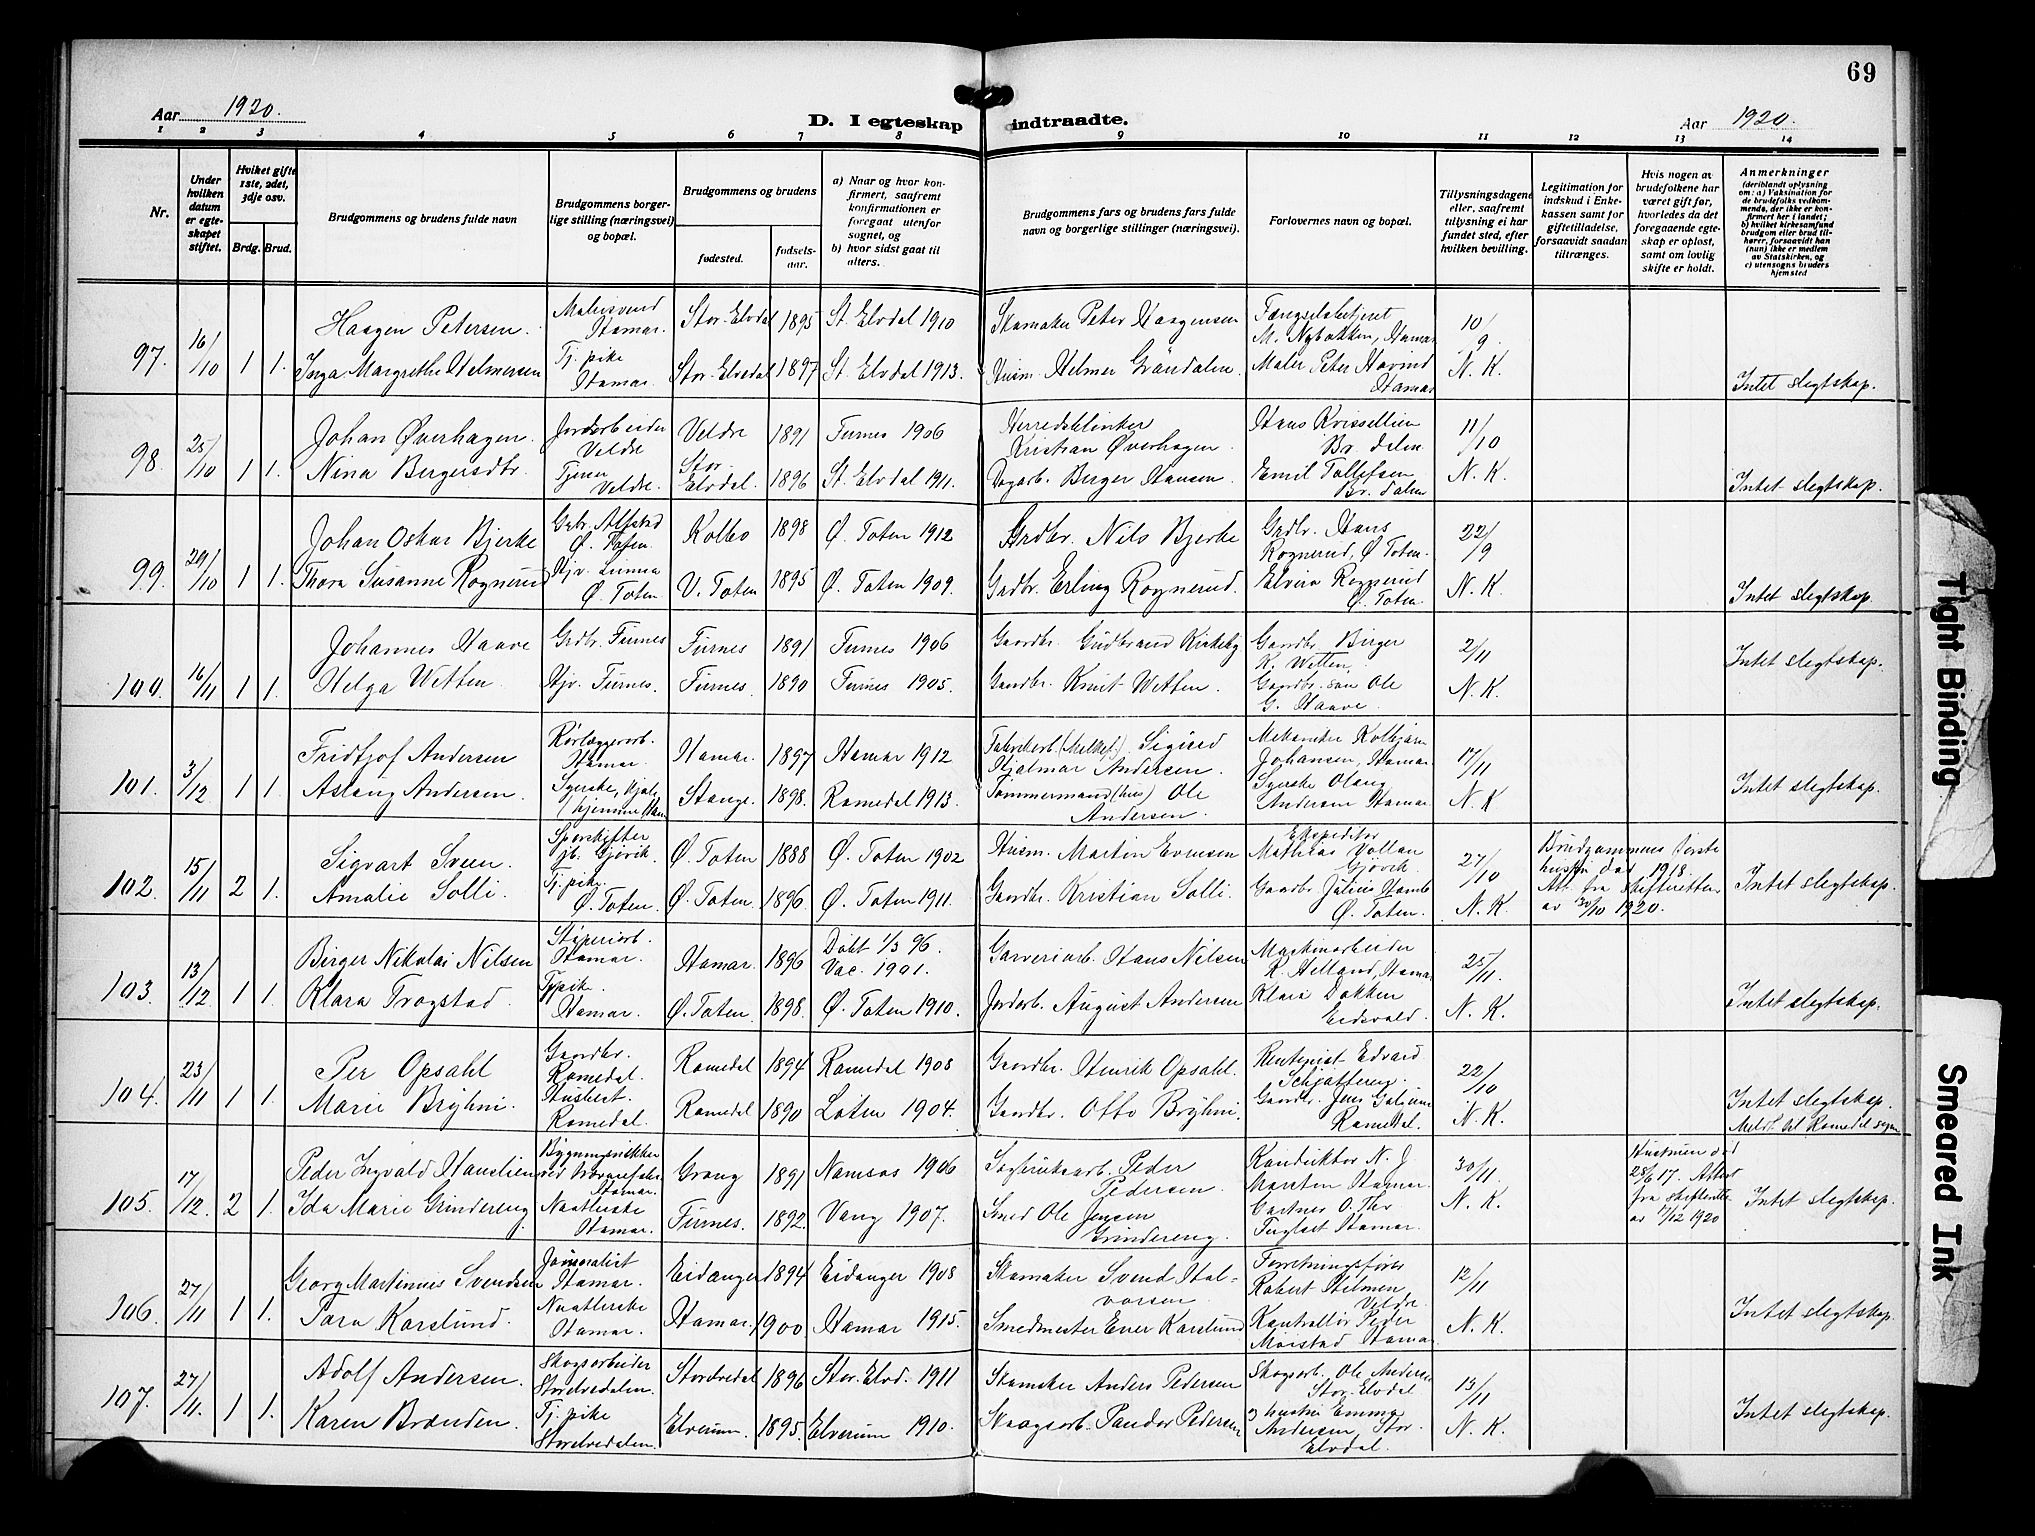 69
Aar 1920.
D. I egteskap indtraadte.
Aar 1920.
1 2 3 4 5 6 7 8 9 10 11 12 13 14
Nr.
Under hvilken datum er egteskapet stiftet.
Hvilket gifte 1ste, 2det, 3dje osv.
Brdg. Brud.
Brudgommens og brudens fulde navn
Brudgommens borgerlige stilling (næringsvei) og bopæl.
Brudgommens og brudens
fødested.
fødselsaar.
a) Naar og hvor konfirmert, saafremt konfirmationen er foregaat utenfor sognet, og
b) hvor sidst gaat til alters.
Brudgommens fars og brudens fars fulde navn og borgerlige stillinger (næringsvei).
Forlovernes navn og bopæl.
Tillysningsdagene eller, saafremt tillysning ei har fundet sted, efter hvilken bevilling.
Legitimation for indskud i Enkekassen samt for giftetilladelse, forsaavidt saadan tiltrænges.
Hvis nogen av brudefolkene har været gift før, hvorledes da det foregaaende egteskap er opløst, samt om lovlig skifte er holdt.
Anmerkninger
(deriblandt oplysning om: a) Vaksination for de brudefolks vedkommende, der ikke er konfirmert her i landet; b) hvilket kirkesamfund brudgom eller brud tilhører, forsaavidt han (hun) ikke er medlem av Statskirken, og c) utensogns bruders hjemsted
97. 16/10 1 1.
Haagen Petersen. Malersvend Hamar. Stor-Elvdal 1895 St. Elvdal 1910 Skomaker Peter Haagensen Fængselsbetjent M. Nybakken, Hamar 10/9.
Inga Margrethe Helmersen Tj. pike Hamar. Stor-Elvedal 1897 St. Elvdal 1913. Husm. Helmer Grøndalen. Maler Peter Hovind Hamar N. K. Intet slegtskap.
98. 25/10 1 1.
Johan Øverhagen. Jordarbeider Veldre Veldre 1891 Furnes 1906 Herredsblinker Kristian Øverhagen. Hans Kvissellien Br. dalen 11/10
Nina Bergersdtr. Tjener Veldre. Stor-Elvdal. 1896 St. Elvdal 1911. Dagarb. Berger Hansen. Emil Tollefsen Br. dalen N. K. Intet slegtskap.
99. 20/10 1 1.
Johan Oskar Bjerke Grbr. Alfstad Ø. Toten. Kolbo 1898 Ø. Toten 1912 Grdbr. Nils Bjerke Grdbr. Hans Rognerud, Ø Toten. 22/9
Thora Susanne Rognerud Hjv. Lunna Ø. Toten V. Toten 1895 Ø. Toten 1909. Grdbr. Erling Rognerud. Elvira Rognerud Ø. Toten. N. K. Intet slegtskap.
100. 16/11 1 1.
Johannes Haave Grdbr. Furnes Furnes 1891 Furnes 1906 Gaardbr. Gudbrand Kirkeby Gaardbr. Birger K. Wetten, 2/11 Intet slegtskap.
Helga Wetten. Hjv. Furnes. Furnes. 1890 Furnes 1905. Gaardbr. Knut Wetten. Gaardbr. søn Ole G. Haave. N. K.
101. 3/12 1 1.
Fridtjof Andersen Rørlæggerarb. Hamar. Hamar. 1897 Hamar 1912 Fabrikarb. (Melkef.) Sigurd Hjalmar Andersen. Mekaniker Kolbjørn Johansen, Hamar 17/11
Aslaug Andersen. Syerske, Hjelp i hjemmet Stange. 1898. Romedal 1913. Tømmermand (hus) Ole Andersen. Syerske Olaug Andersen Hamar. N. K Intet slegtskap.
102. 15/11 2 1.
Sigvart Sveen. Sporskifter jb. Gjøvik. Ø. Toten 1888 Ø. Toten 1902 Husm. Martin Evensen Ekspeditør Mathias Vollan Gjøvik 27/10 Brudgommens første hustru død 1918. Att. fra skifteretten av 30/10 1920. Intet slegtskap.
Amalie Solli. Tj. pike Ø. Toten. Ø. Toten. 1896. Ø. Toten 1911. Gaardbr. Kristian Solli. Gaardbr. Julius Homb Ø. Toten. N. K.
103. 13/12 1 1.
Birger Nikolai Nilsen Støperiarb. Hamar. Hamar. 1896 Døbt 1/3 96. Vac. 1901. Garveriarb. Hans Nilsen Maskinarbeider R. Helland, Hamar 25/11.
Klara Trogstad. Tj.pike Hamar. Ø. Toten. 1898. Ø. Toten 1910. Jordarb. August Andersen Klara Dokken Eidsvold. N. K. Intet slegtskap.
104. 23/11 1 1.
Per Opsahl Gaardbr. Romedal. Romedal 1894 Romedal 1908 Gaardbr. Henrik Opsahl. Rentenist Edvard 22/10
Marie Bryhni. Husbest. Romedal. Romedal 1890 Løten 1904. Gaardbr. Otto Bryhni. Gaardbr. Jens Romedal. N. K. Intet slegtskap. Meldt til Romedal sogn
105. 17/12. 2 1.
Peder Ingvald Hauslien Bygningssnikker Hamar. Grong 1891 Namsos 1906 Sagbruksarb. Peder Pedersen. Konduktør N. J. Morsten Hamar. 30/11. Hustruen død 28/6 17. Attest fra skifteretten av 17/12 1920 Intet slegtskap.
Ida Marie Grindereng Naatlerske Hamar. Furnes. 1892. Vang 1907. Smed Ole Jensen Grindereng. Gartner O. Thv. Fuglset Hamar. N. K.
106. 27/11 1 1.
Georg Martinius Svendsen Journalist Hamar. Eidanger 1894 Eidanger 1908 Skomaker Svend Halvorsen Forretningsfører Robert Helmen Veldre 12/11
Tora Karslund. Naatlerske Hamar. Hamar. 1900 Hamar 1915. Smedmester Even Karslund Kontrollør Peder Moistad Hamar N. K. Intet slegtskap.
107. 27/11. 1 1.
Adolf Andersen. Skogsarbeider Storelvedalen. Storelvedal 1896 Stor. Elvd. 1911 Skomaker Anders Pedersen Skogsarb. Ole Andersen Stor-Elvdal 13/11
Karen Brænden. Tj. pike Storelvedalen. Elverum. 1895. Elverum 1910. Skogsarb. Pedersen hustru Emma Andersen, Stor-Elvdal. N. K. Intet slegtskap.
Tight Binding
Smeared Ink